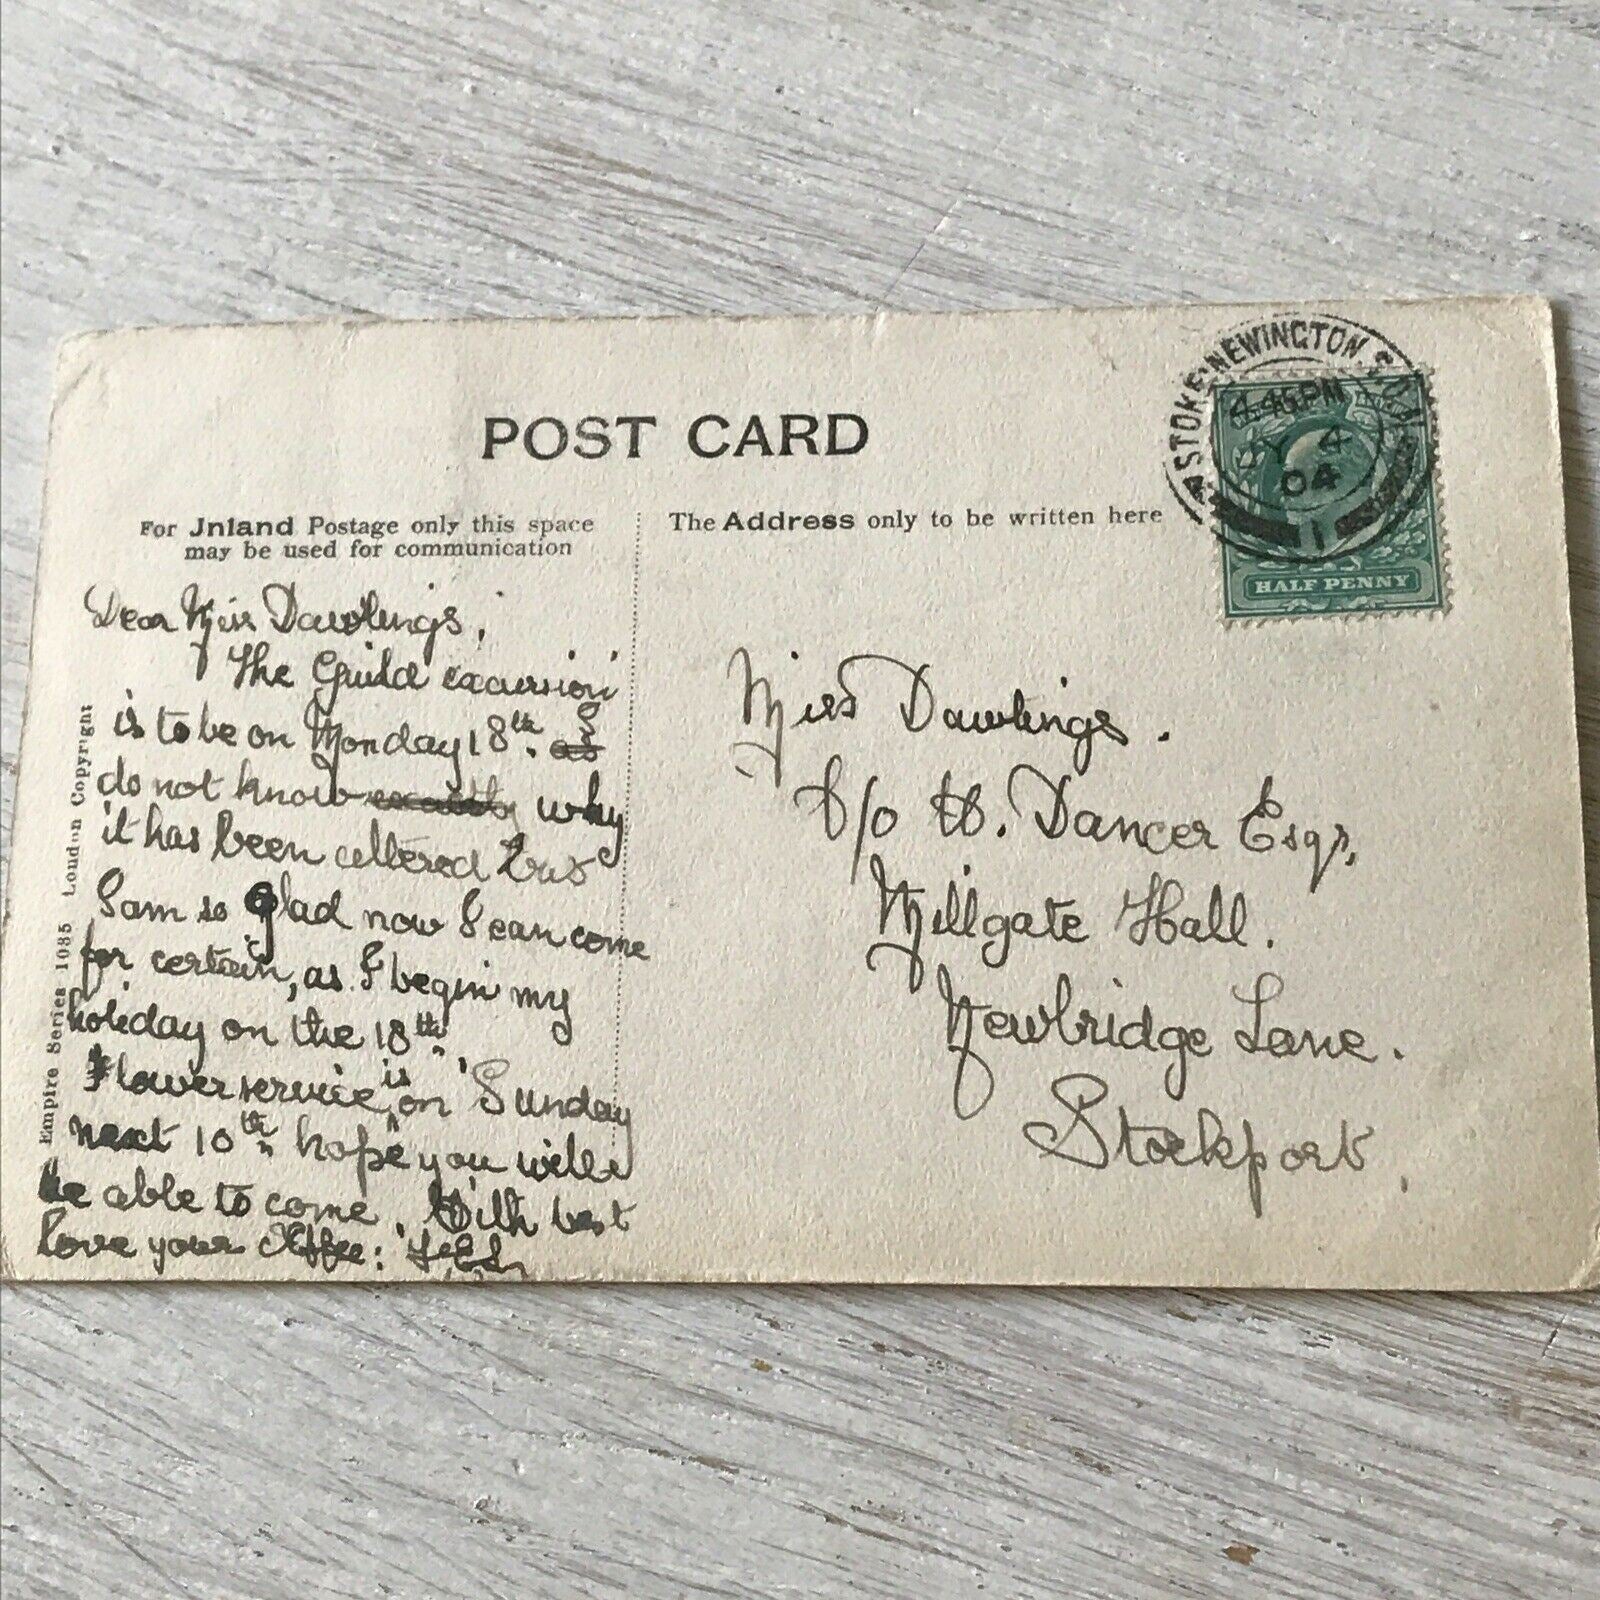 POST CARD
For Jnland Postage only this space
may be used for communication
The Address only to be written here
STOKE NEWINGTON. S.O.
4.45PM
JY 4
04
1
HALF PENNY
Dear Miss Dawlings,
The Guild excursion
is to be on Monday 18th. as I
do not know exactly why
it has been altered but
I am so glad now I can come
for certain, as I begin my
holiday on the 18th.
Flower service is on Sunday
next 10th. hope you will
be able to come. With best
love your affec:
Miss Dawlings.
c/o W. Dancer Esqr,
Millgate Hall.
Newbridge Lane.
Stockport.
Empire Series 1085 London Copyright